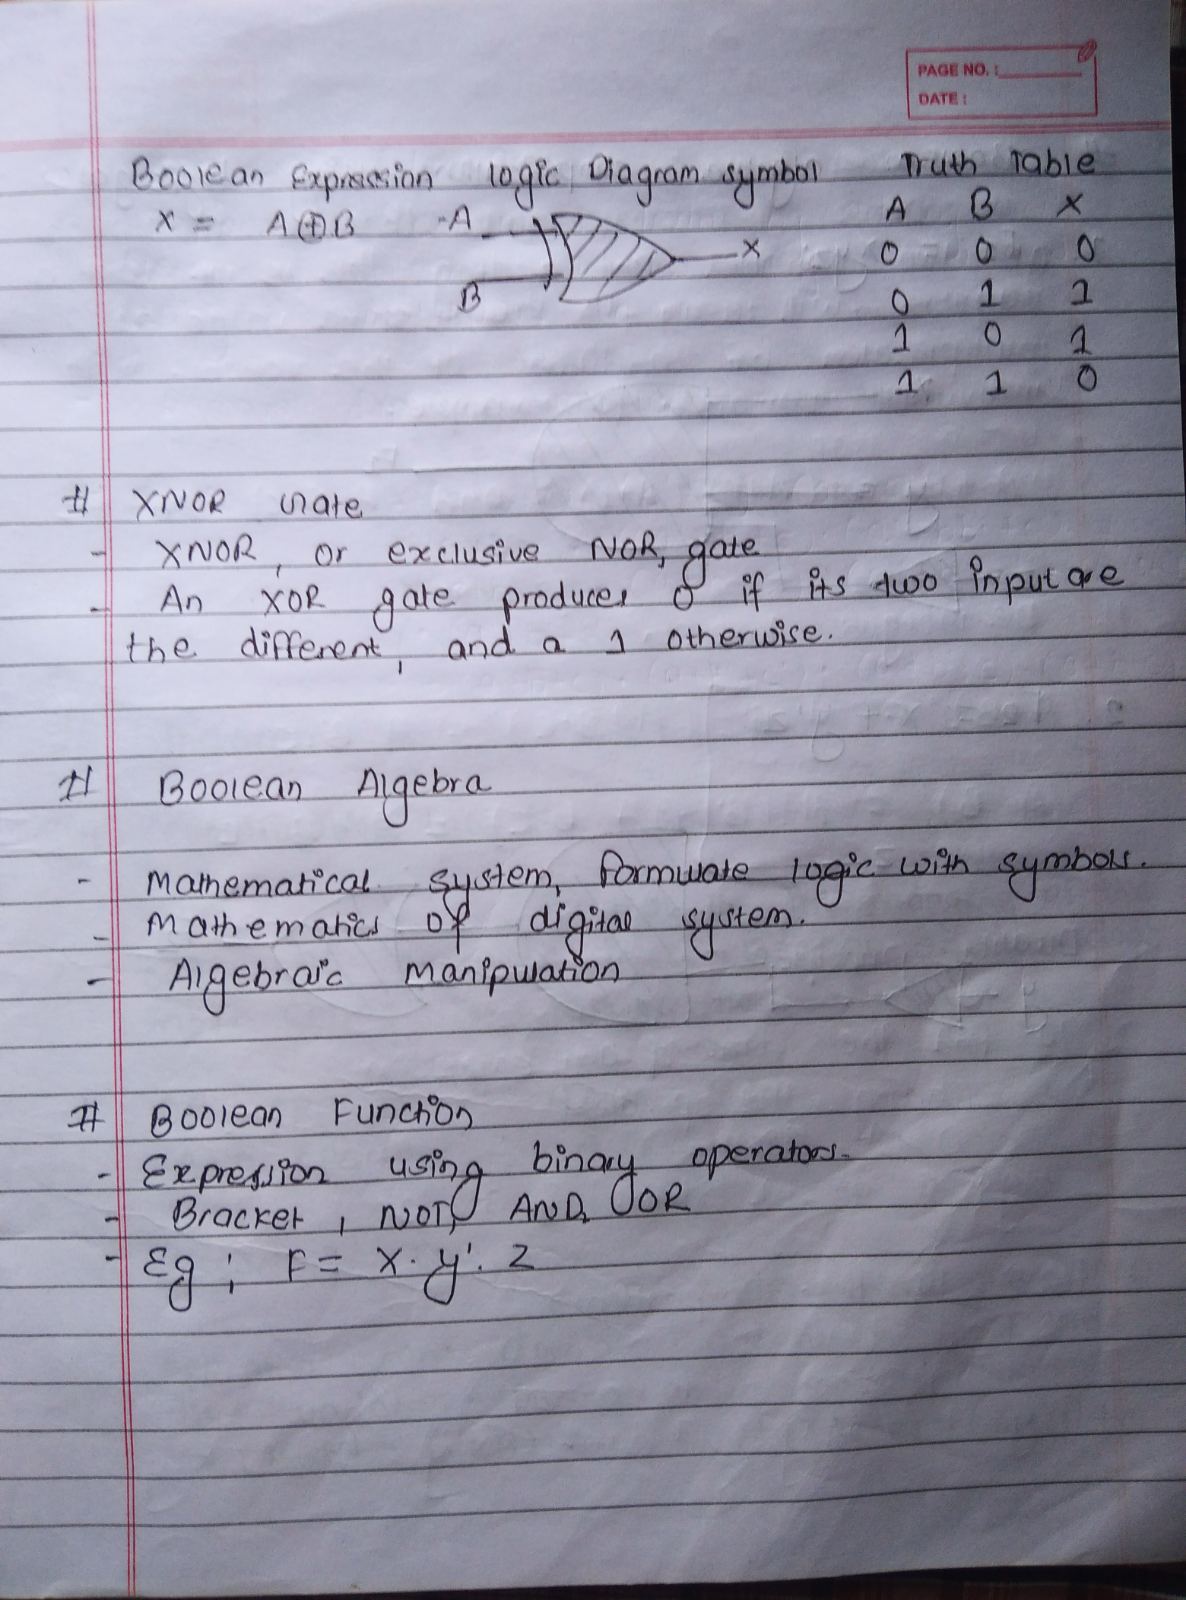 PAGE NO. :
DATE :
Boolean Expression logic Diagram symbol Truth Table
X = A⊕B A B X
A
X
B
0 0 0
0 1 1
1 0 1
1 1 0
# XNOR Gate
- XNOR, or exclusive NOR, gate
- An XOR gate produces 0 if its two input are
the different, and a 1 otherwise.
# Boolean Algebra
- Mathematical system, formulate logic with symbols.
- Mathematics of digital system.
- Algebraic Manipulation
# Boolean Function
- Expression using binary operators.
- Bracket, NOT, AND, OR
- Eg ; F = X. y'. Z